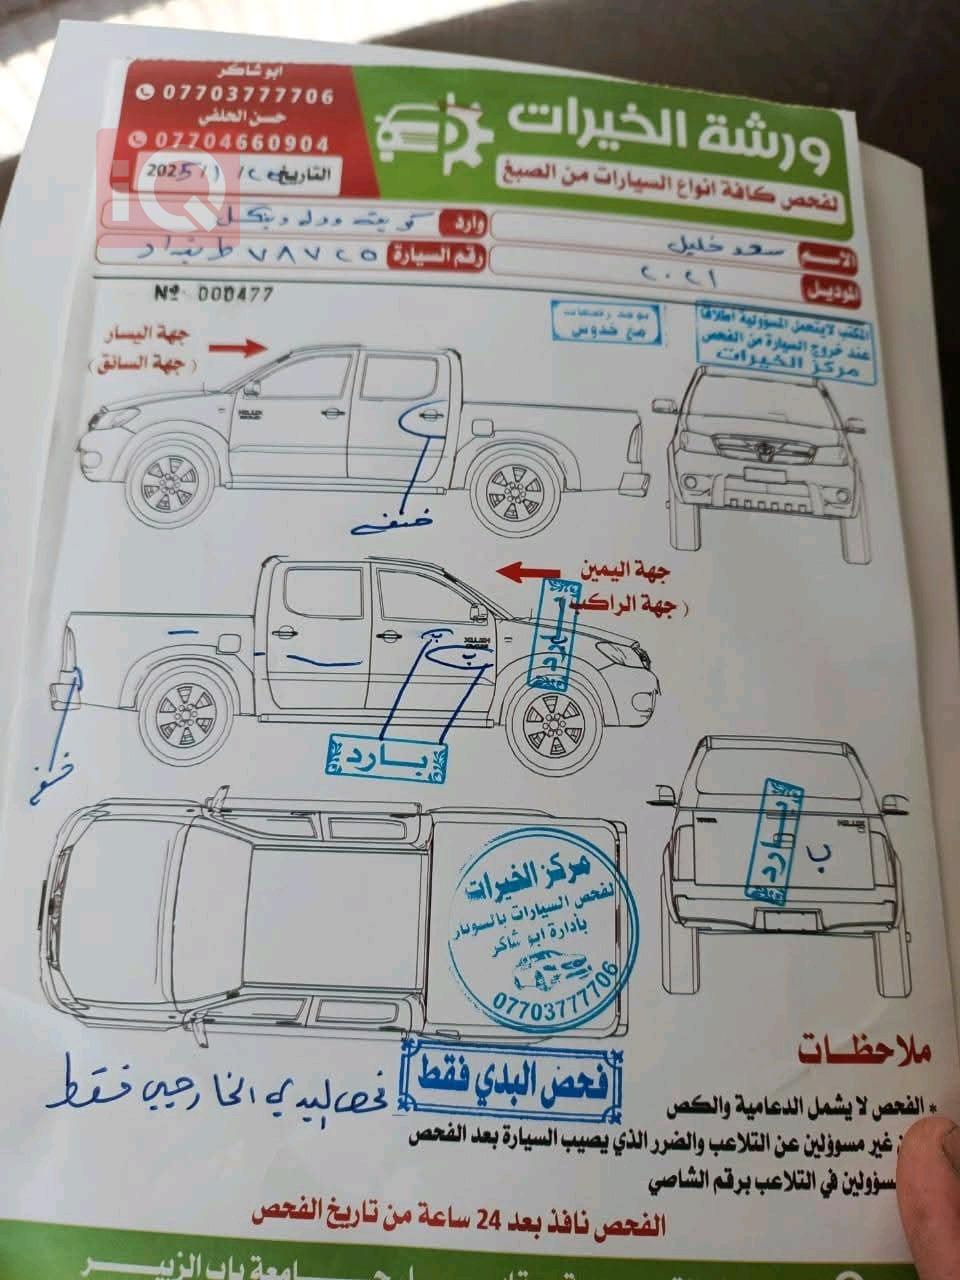 ورشة الخيرات
لفحص كافة انواع السيارات من الصبغ
ابو شاكر
07703777706
حسن الحلفي
07704660904
التاريخ / 1 / 2025
iQ
الاسم سعد خليل
وارد كويت وورلد وينكل
الموديل ٢٠٢١
رقم السيارة ٧٨٧٢٥ ط بغداد
Nº 000477
المكتب لايتحمل المسؤولية اطلاقا
عند خروج السيارة من الفحص
مركز الخيرات
يوجد رصعات
مع خدوش
جهة اليسار
( جهة السائق )
HILUX
خسفه
جهة اليمين
( جهة الراكب
بارد
ب
ب
HILUX
بارد
خسفه
TOYOTA
HILUX
بارد
ب
مركز الخيرات
لفحص السيارات بالسونار
بأدارة ابو شاكر
07703777706
فحص البدي فقط
فحص البدي الخارجي فقط
ملاحظات
* الفحص لا يشمل الدعامية والكص
غير مسوؤلين عن التلاعب والضرر الذي يصيب السيارة بعد الفحص
مسؤولين في التلاعب برقم الشاصي
الفحص نافذ بعد 24 ساعة من تاريخ الفحص
جامعة باب الزبير